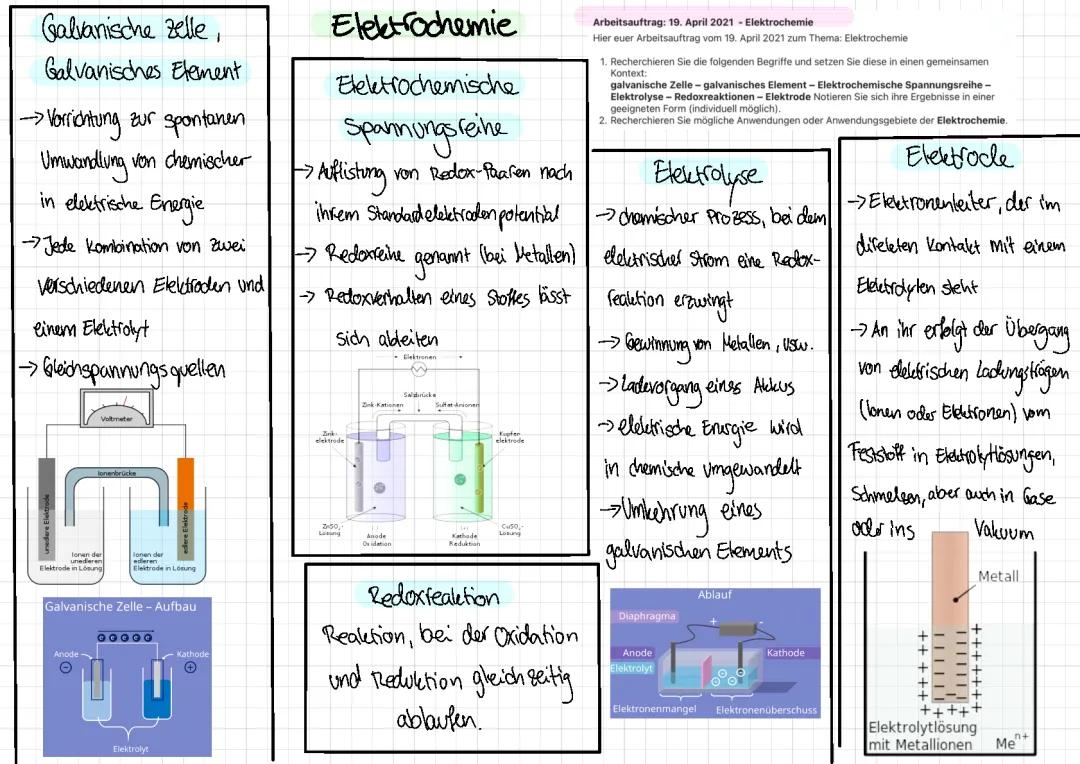 Galvanische Zelle,
Galvanisches Element
→ Vorrichtung zur spontanen
Umwandlung von chemischer
in elektrische Energie
→ Jede Kombination von zwei
verschiedenen Elektroden und
einem Elektrolyt
→ Gleichspannungsquellen
Voltmeter
Ionenbrücke
unedlere Elektrode
edlere Elektrode
Ionen der
unedleren
Elektrode in Lösung
Ionen der
edleren
Elektrode in Lösung
Galvanische Zelle – Aufbau
e e e e e
Anode
Kathode
Elektrolyt
Elektrochemie
Elektrochemische
Spannungsreihe
→ Auflistung von Redox-Paaren nach
ihrem Standardelektrodenpotential
→ Redoxreihe genannt (bei Metallen)
→ Redoxverhalten eines Stoffes lässt
sich ableiten
Elektronen
Salzbrücke
Zink-Kationen
Sulfat-Anionen
Zink-
elektrode
Kupfer
elektrode
ZnSO₄-
Lösung
(-)
Anode
Oxidation
(+)
Kathode
Reduktion
CuSO₄-
Lösung
Redoxreaktion
Reaktion, bei der Oxidation
und Reduktion gleichzeitig
ablaufen.
Arbeitsauftrag: 19. April 2021 - Elektrochemie
Hier euer Arbeitsauftrag vom 19. April 2021 zum Thema: Elektrochemie
1. Recherchieren Sie die folgenden Begriffe und setzen Sie diese in einen gemeinsamen
Kontext:
galvanische Zelle – galvanisches Element – Elektrochemische Spannungsreihe –
Elektrolyse – Redoxreaktionen – Elektrode Notieren Sie sich ihre Ergebnisse in einer
geeigneten Form (individuell möglich).
2. Recherchieren Sie mögliche Anwendungen oder Anwendungsgebiete der Elektrochemie.
Elektrolyse
→ chemischer Prozess, bei dem
elektrischer Strom eine Redox-
reaktion erzwingt
→ Gewinnung von Metallen, usw.
→ Ladevorgang eines Akkus
→ elektrische Energie wird
in chemische umgewandelt
→ Umkehrung eines
galvanischen Elements
Ablauf
Diaphragma
+ -
Anode
Kathode
Elektrolyt
Elektronenmangel
Elektronenüberschuss
Elektrode
→ Elektronenleiter, der im
direkten Kontakt mit einem
Elektrolyten steht
→ An ihr erfolgt der Übergang
von elektrischen Ladungsträgen
(Ionen oder Elektronen) vom
Feststoff in Elektrolytlösungen,
Schmelzen, aber auch in Gase
oder ins Vakuum
Metall
Elektrolytlösung
mit Metallionen
Meⁿ⁺